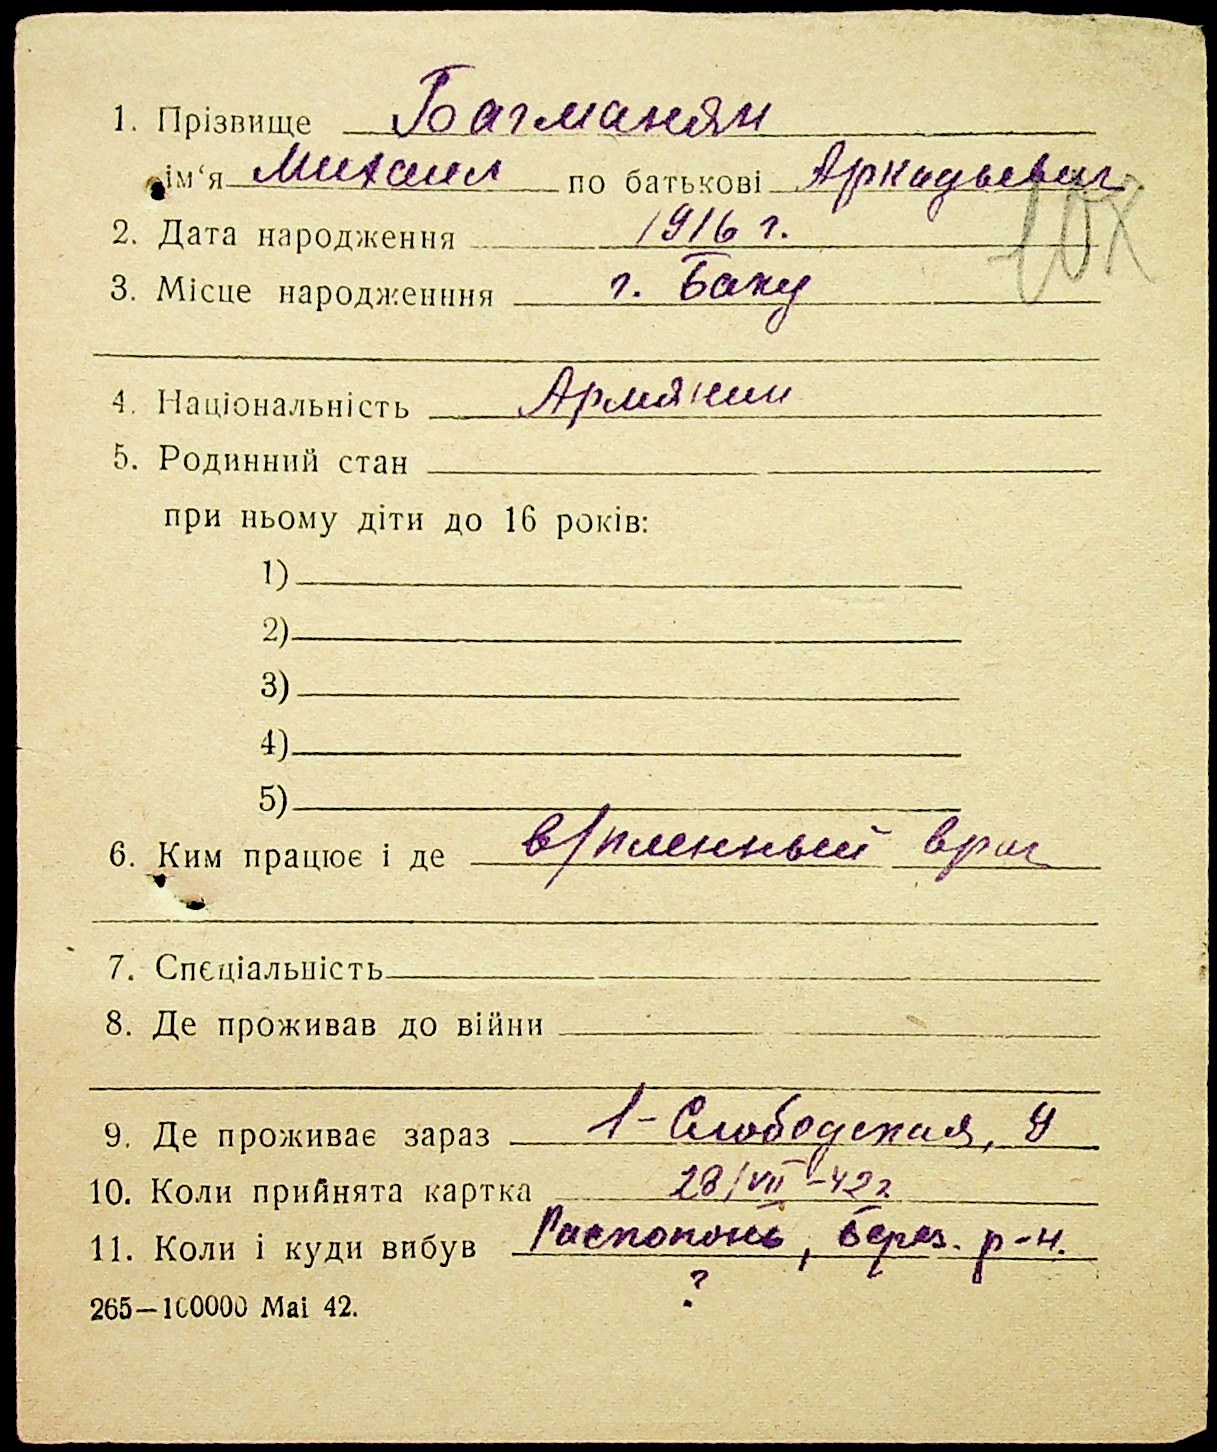 1. Прізвище Багманян
ім'я Михаил по батькові Аркадьевич
2. Дата народження 1916 г.
3. Місце народженння г. Баку
4. Національність Армянин
5. Родинний стан
при ньому діти до 16 років:
1)
2)
3)
4)
5)
6. Ким працює і де в/пленный врач
7. Спеціальність
8. Де проживав до війни
9. Де проживає зараз 1-Слободская, 9
10. Коли прийнята картка 28/VII-42г
11. Коли і куди вибув Берез. р-н.
?
265—100000 Mai 42.